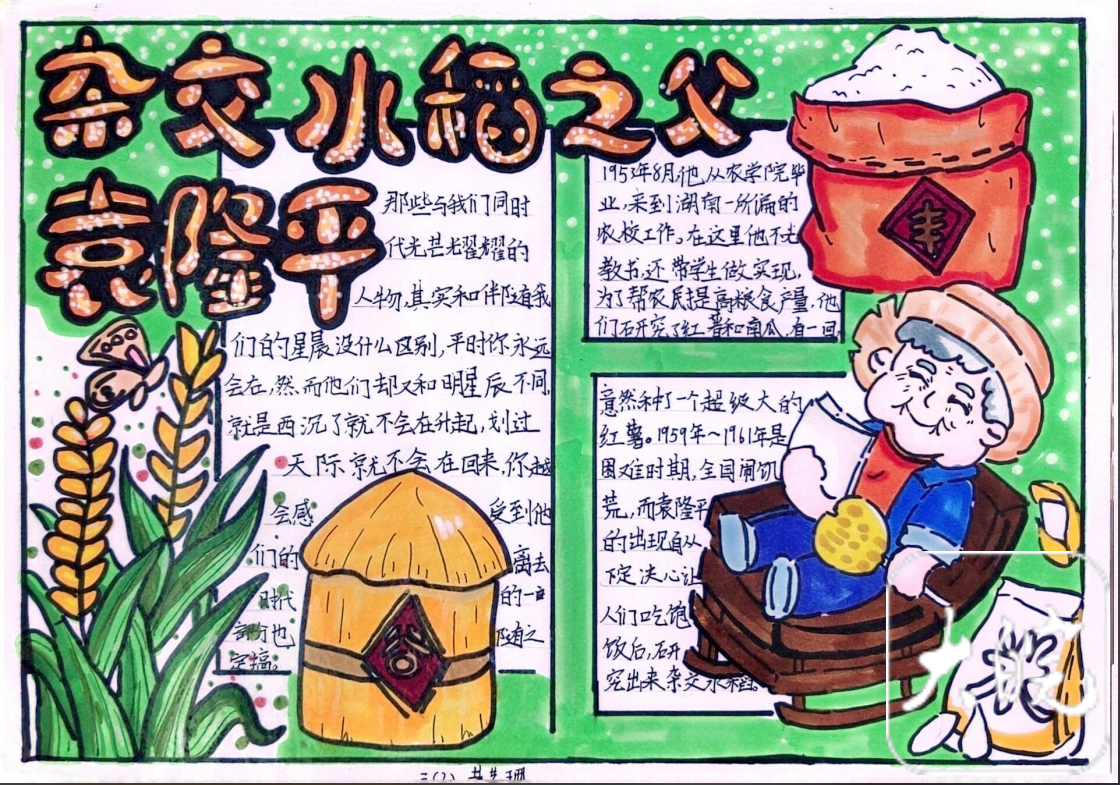 杂交水稻之父
袁隆平
那些与我们同时
代光芒光翟耀的
人物,其实和伴随着我
们的星晨没什么区别,平时你永远
会在,然而他们却又和明星辰不同,
就是西沉了就不会在升起,划过
天际就不会在回来,你越
会感 受到他
们的 离去
时代 的一
也 随着之
定搞。
1953年8月他,从农学院毕
业,来到湖南一所偏的
农校工作。在这里他不光
教书,还带学生做实现,
为了帮农民提高粮食产量,他
们研究了红薯和南瓜,有一回,
竟然种了一个超级大的
红薯。1959年~1961年是
困难时期,全国闹饥
荒,而袁隆平
的出现自从
下定决心让
人们吃饱
饭后,研
究出来杂交水稻。
丰
谷
大米